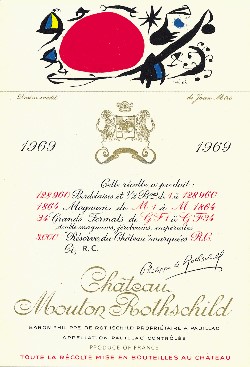 Dessin inédit de Joan Miró
1969 1969
Cette récolte a produit:
128960 Bordelaises et ½ Bses de 1 à 128960
1864 Magnums de M 1 à M 1864
24 Grands Formats de G F 1 à G F 24
double magnums, jéroboams, impériales
3000 "Réserve du Château" marquées R.C.
Ci, R.C.
Philippe de Rothschild
Château
Mouton Rothschild
BARON PHILIPPE DE ROTHSCHILD PROPRIÉTAIRE A PAUILLAC
APPELLATION PAUILLAC CONTRÔLÉE
PRODUCE OF FRANCE
TOUTE LA RÉCOLTE MISE EN BOUTEILLES AU CHÂTEAU